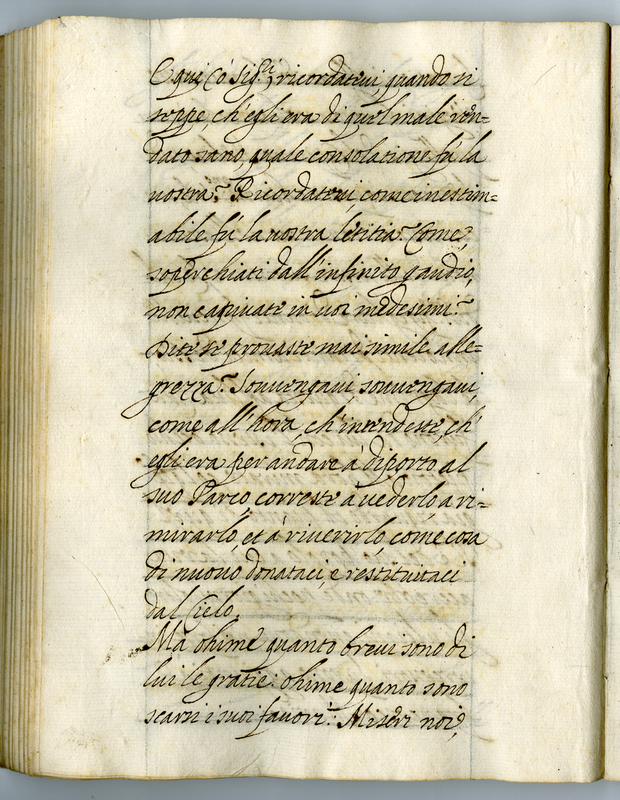 E qui Cò Sig.ri ricordatevi, quando si
seppe ch'egli era di quel male ren=
dato sano, quale consolatione fù la
nostra? Ricordatevi, come inestim=
abile fù la nostra letitia? Come?
soperchiati dall'infinito gaudio,
non capivate in voi medesimi?
Dite se provaste mai simile alle=
grezza? Souvengavi, souvengavi,
come all'hora, ch'intendeste, ch'
egli era per andare à diporto al
suo Parco, correste à vederlo, a ri=
mirarlo, et à riverirlo, come cosa
di nuovo donataci, e restituitaci
dal Cielo.
Ma ohime quanto brevi sono di
lui le gratie: ohime quanto sono
scarsi i suoi favori? Miseri noi,